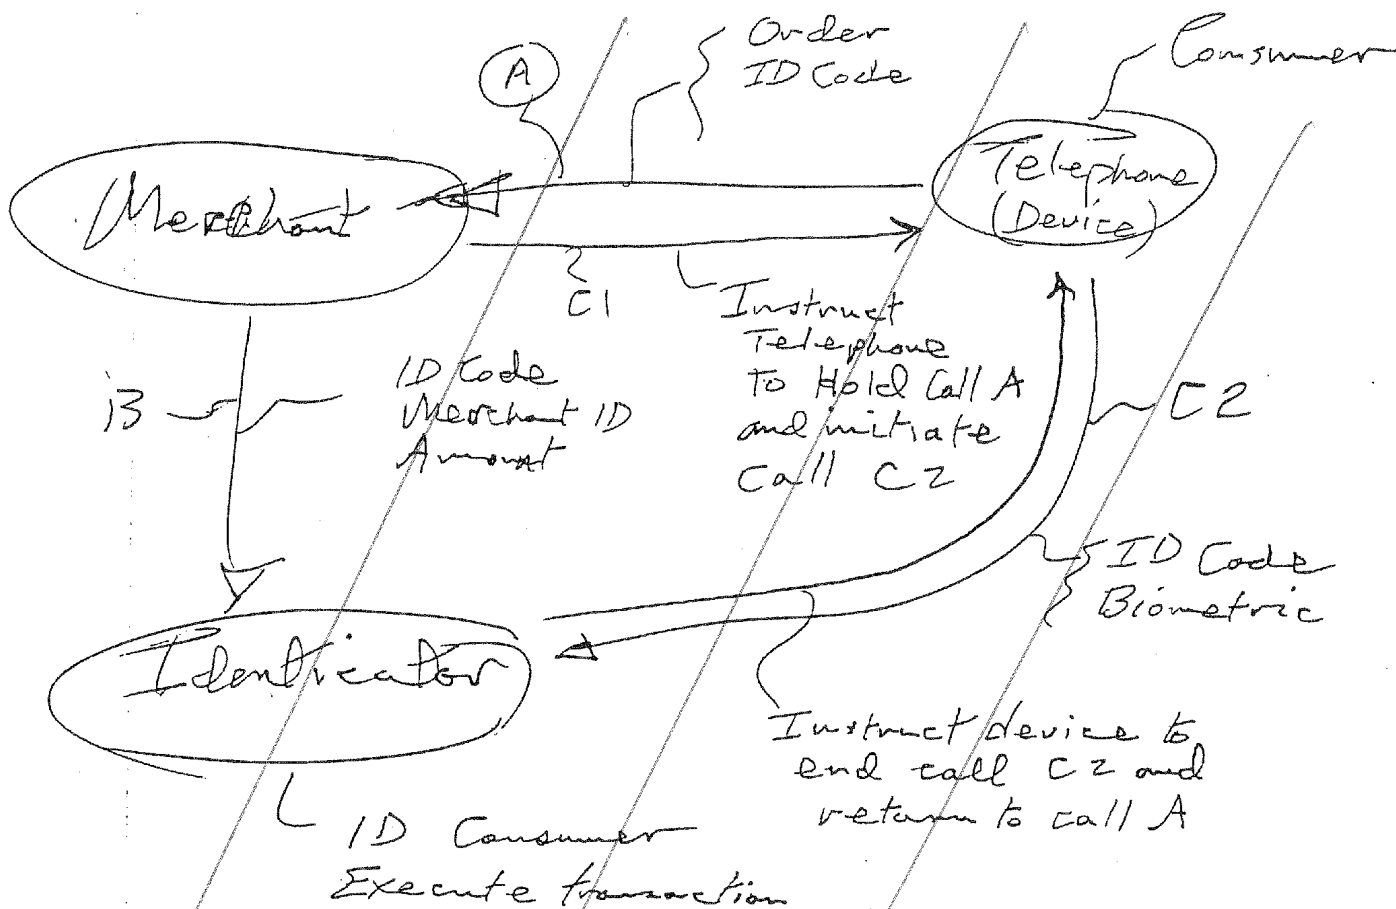 Order
ID Code
A
Consumer
Merchant
Telephone
(Device)
C1
Instruct
Telephone
To Hold Call A
and initiate
Call C2
B
ID Code
Merchant ID
Amount
C2
ID Code
Biometric
Identicator
Instruct device to
end call C2 and
return to call A
ID Consumer
Execute transaction